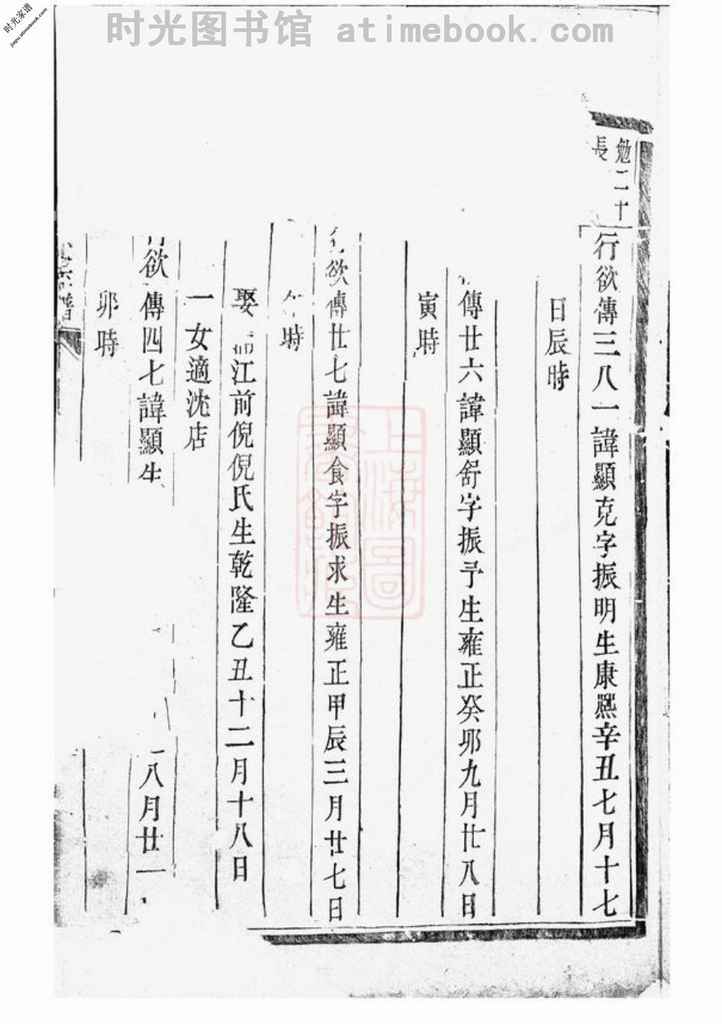 时光家谱
jiapu.atimebook.com
时光图书馆 atimebook.com
勉二十
長
行欲傳三八一諱顯克字振明生康熈辛丑七月十七
日辰時
傳廿六諱顯舒字振予生雍正癸邜九月廿八日
寅時
欲傳廿七諱顯食字振求生雍正甲辰三月廿七日
時
娶江前倪倪氏生乾隆乙丑十二月十八日
一女適沈店
欲傳四七諱顯生八月廿一
卯時
譜